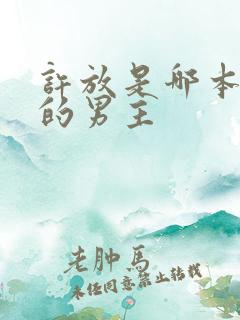 許放是哪本
的男主
老肿馬
未经同意禁止转载